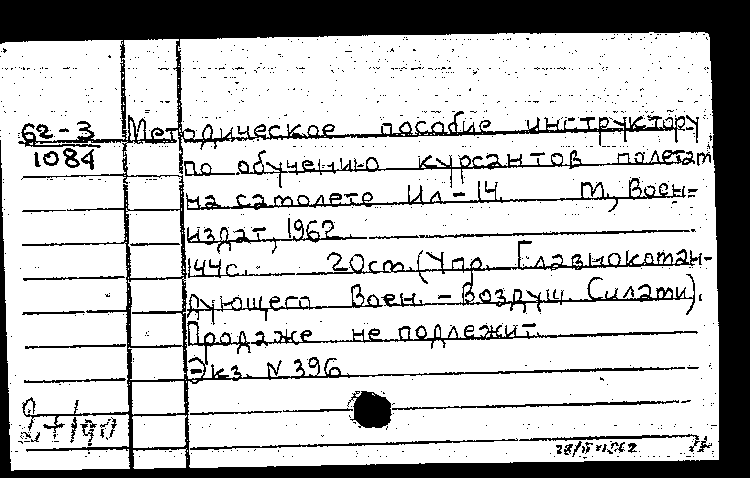 62-3
1084
Методическое пособие инструктору
по обучению курсантов полетам
на самолете Ил-14. М., Воен=
издат, 1962.
144с. 20см. (Упр. Главнокоман-
дующего Воен.-Воздуш. Силами).
Продаже не подлежит.
Экз. N 396.